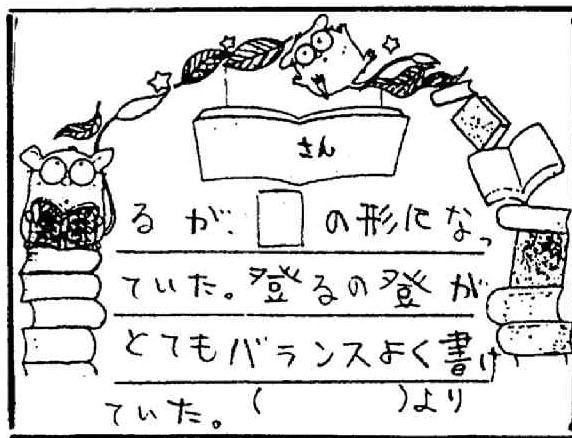 さん
るが、□の形になっ
ていた。登るの登が
とてもバランスよく書け
ていた。(　　　)より